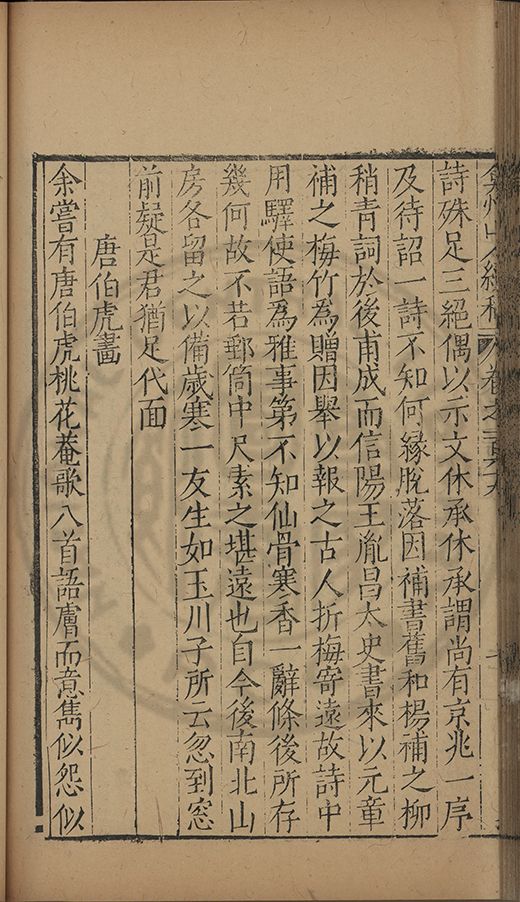 弇州山人續稿 卷之一百六十九
詩殊足三絕偶以示文休承休承謂尚有京兆一序
及待詔一詩不知何緣脫落因補書舊和楊補之柳
稍青詞於後甫成而信陽王胤昌太史書來以元章
補之梅竹為贈因舉以報之古人折梅寄遠故詩中
用驛使語為雅事第不知仙骨寒香一辭條後所存
幾何故不若郵筒中尺素之堪遠也自今後南北山
房各留之以備歲寒一友生如玉川子所云忽到窓
前疑是君猶足代面
唐伯虎畵
余嘗有唐伯虎桃花菴歌八首語膚而意雋似怨似